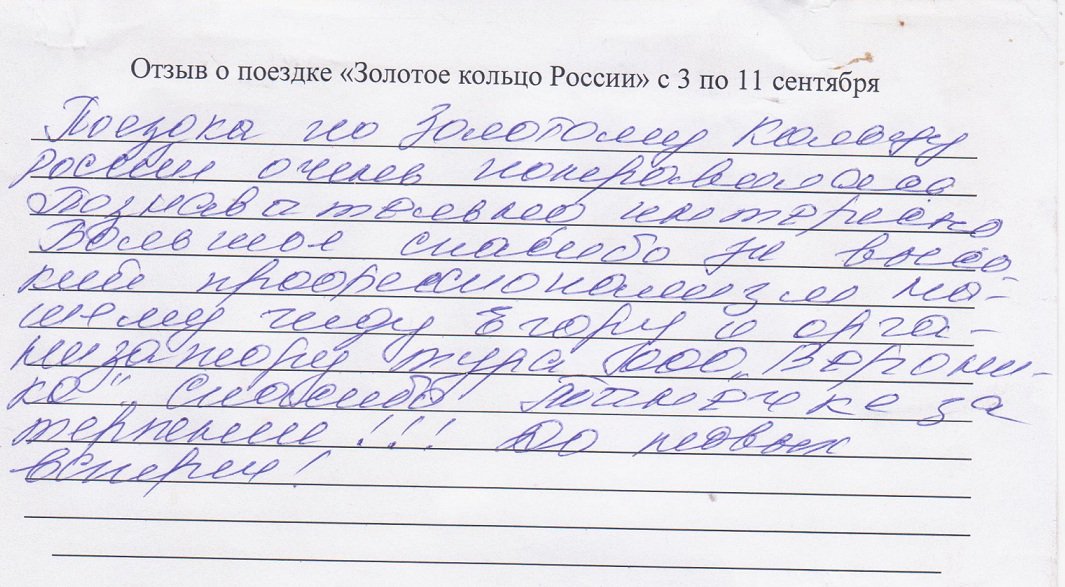 Отзыв о поездке «Золотое кольцо России» с 3 по 11 сентября
Поездка по Золотому Кольцу
России очень понравилась
Познавательно интересно
Большое спасибо за высо-
кий профессионализм на-
шему гиду Егору и орга-
низатору тура ООО „Верони-
ка" спасибо Танечке за
терпение!!! До новых
встреч!